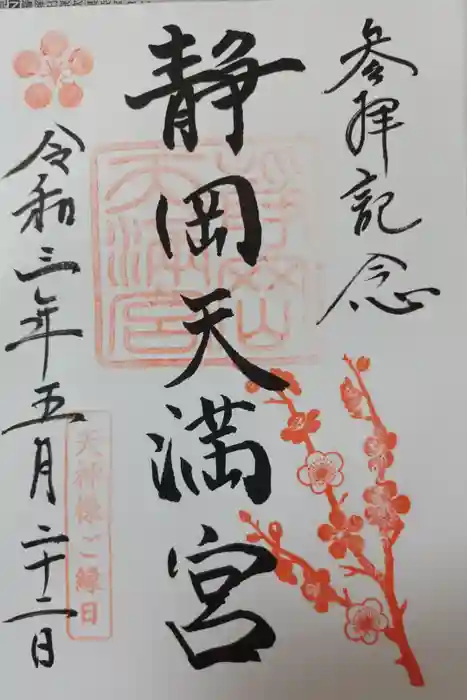 参拝記念
静岡天満宮
静岡天満宮
令和三年五月二十二日
天神様ご縁日